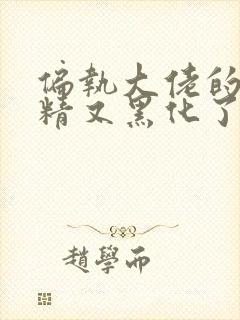 偏執大佬的
精又黑化了
趙學而